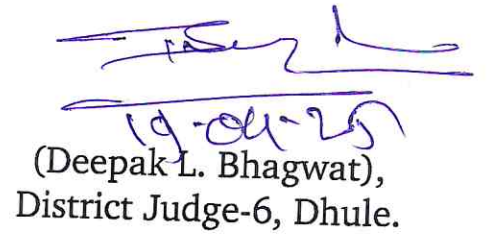 19-04-25
(Deepak L. Bhagwat),
District Judge-6, Dhule.